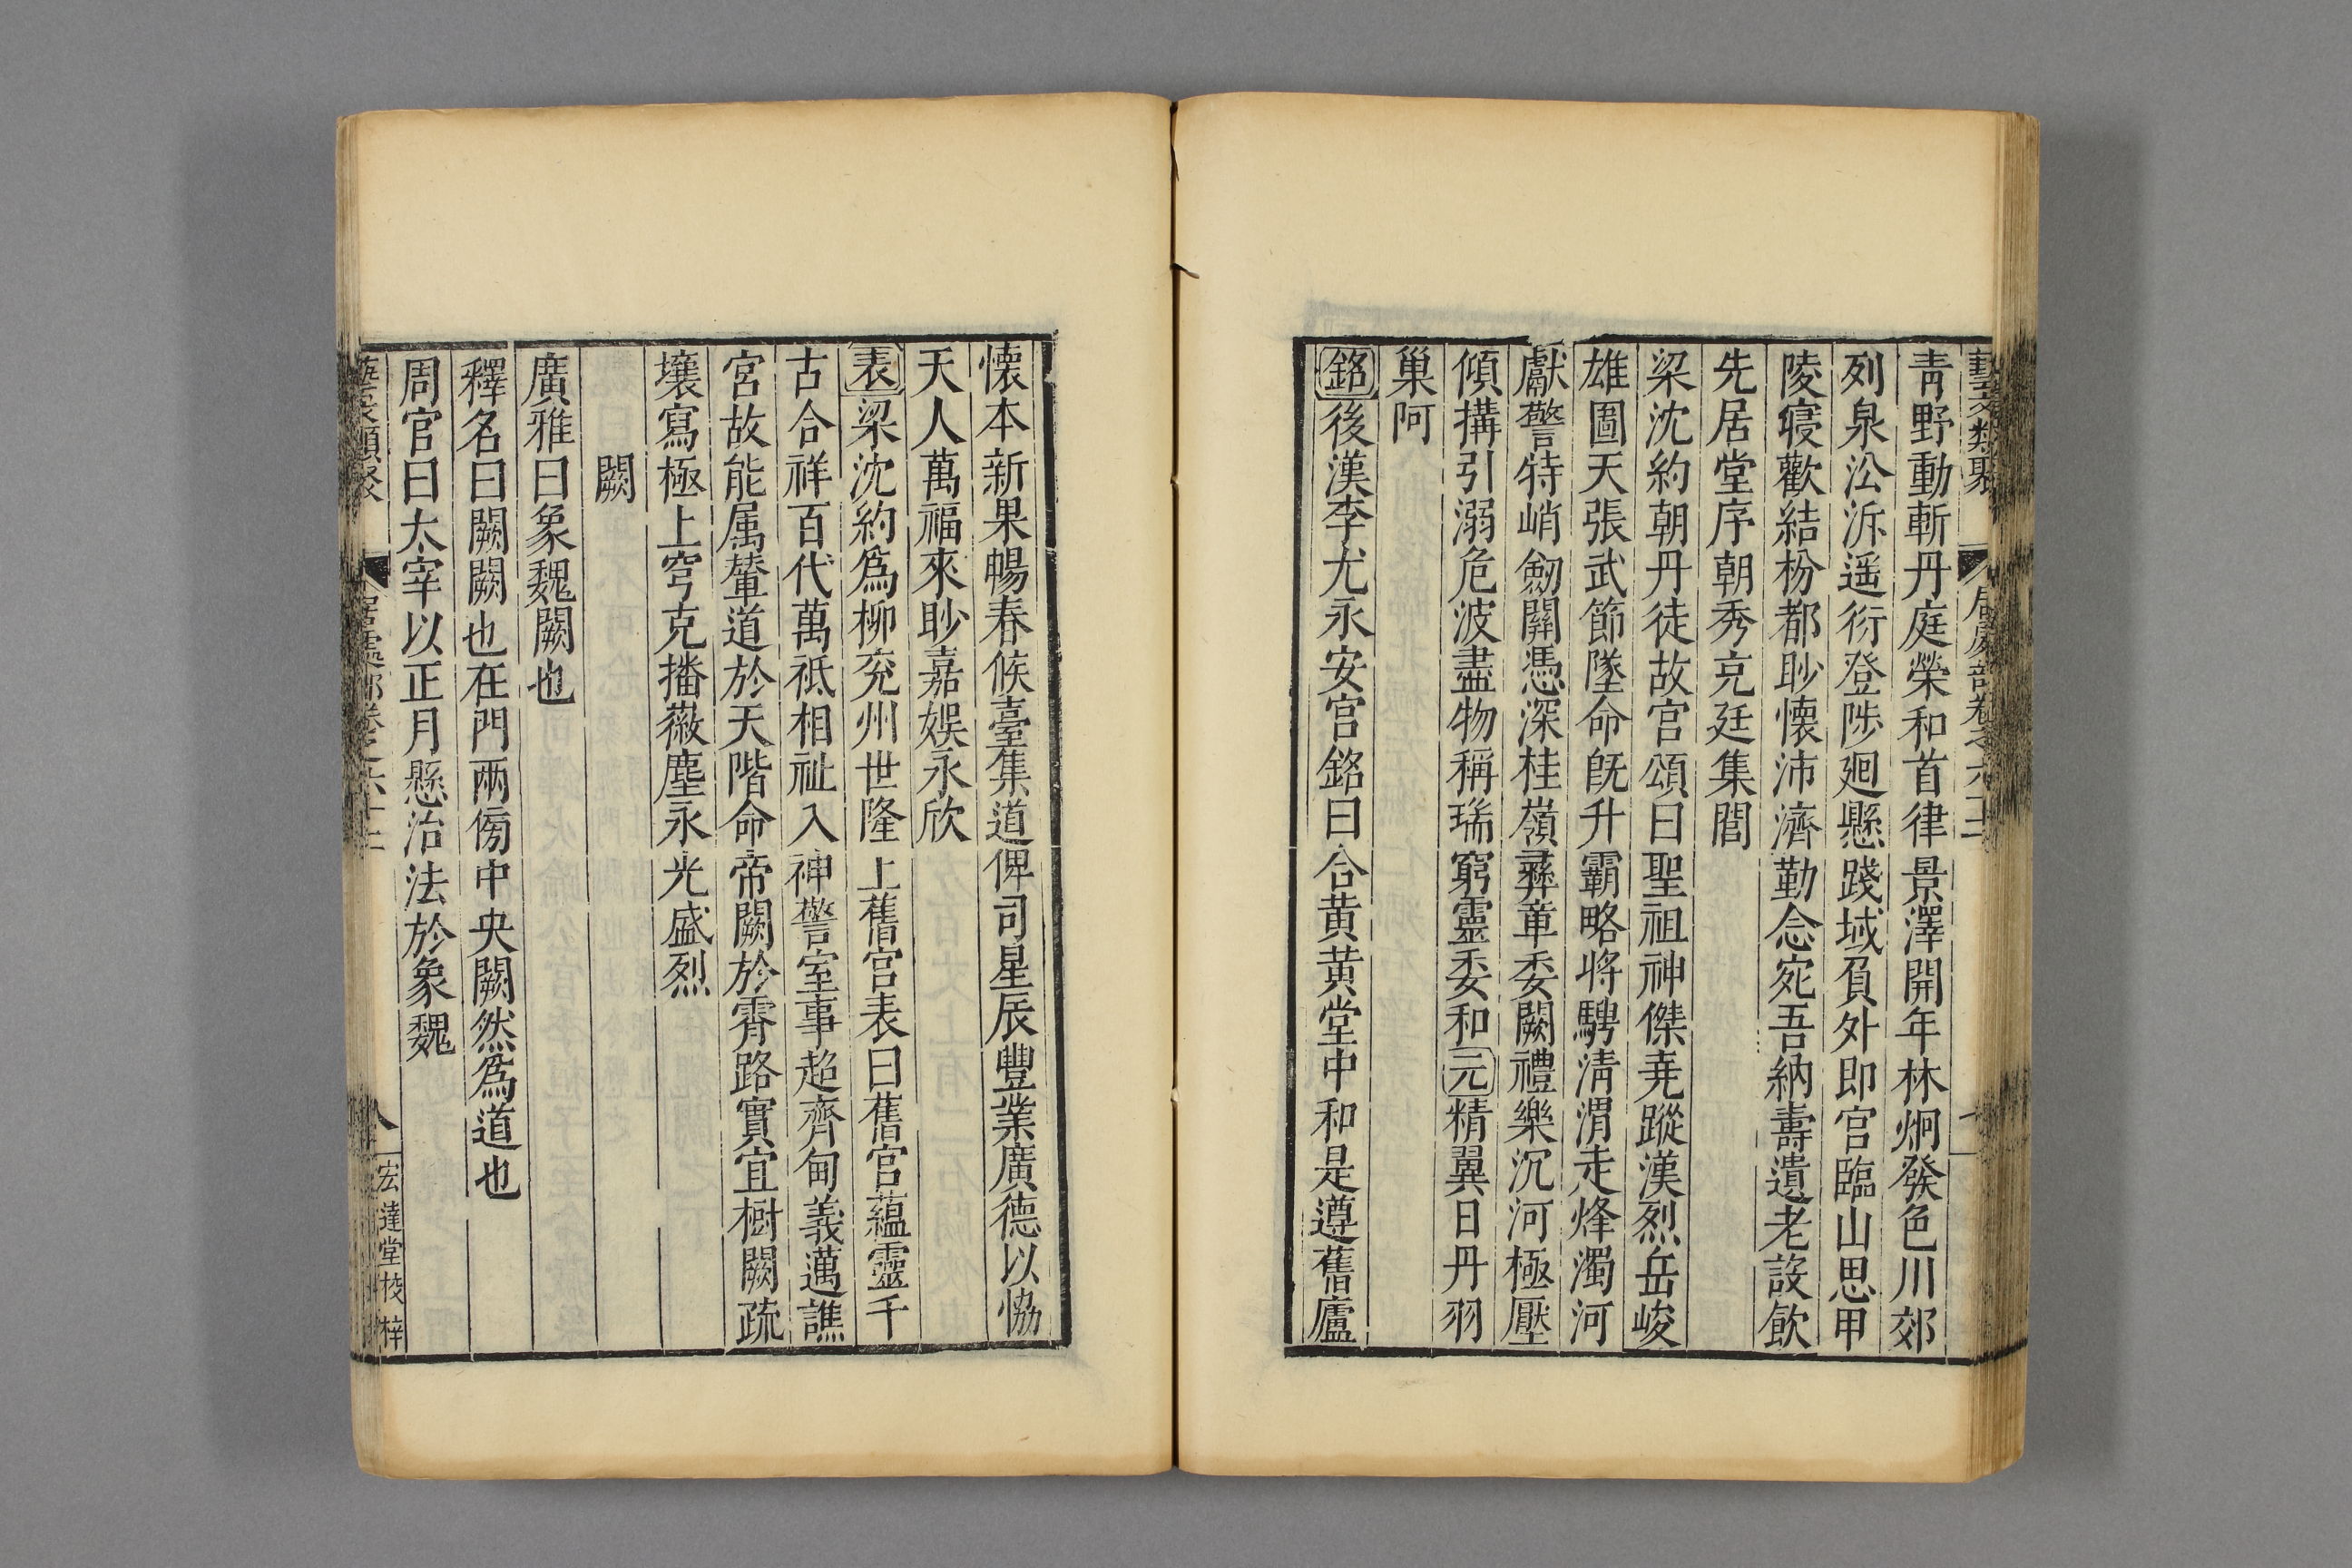 藝文類聚 居處部卷之六十二 七
青野動斬丹庭榮和首律景澤開年林炯發色川郊
列泉㳂泝遥衍登陟廻懸踐域負外即宫臨山思甲
陵寝歡結枌都眇懷沛濟勤念宛吾納壽遺老設飲
先居堂序朝秀克廷集閭
梁沈約朝丹徒故宫頌曰聖祖神傑堯蹤漢烈岳峻
雄圖天張武節墜命旣升霸略將騁淸渭走烽濁河
獻警特峭劒關憑深桂嶺彝章委闕禮樂沉河極壓
傾搆引溺危波盡物稱瑞窮靈委和元精翼日丹羽
巢阿
銘後漢李尤永安宫銘曰合黄黄堂中和是遵舊廬
懷本新果暢春候臺集道俾司星辰豐業廣德以恊
天人萬福來眇嘉娱永欣
表梁沈約爲柳兖州世隆上舊宫表曰舊宫蘊靈千
古合祥百代萬祗相祉入神警室事超齊甸義邁譙
宫故能属輦道於天階命帝闕於霄路實宜樹闕疏
壤寫極上穹克播薇塵永光盛烈
闕
廣雅曰象魏闕也
釋名曰闕闕也在門兩傍中央闕然爲道也
周官曰太宰以正月懸治法於象魏
藝文類聚 居處部卷之六十二 八 宏達堂校梓